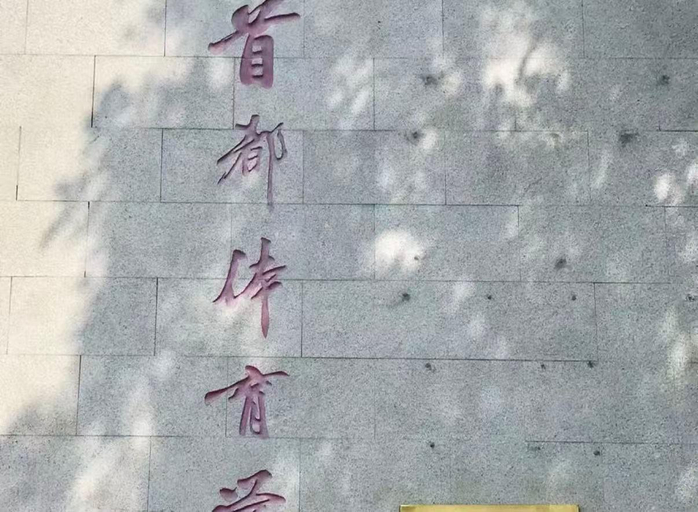 首都体育学